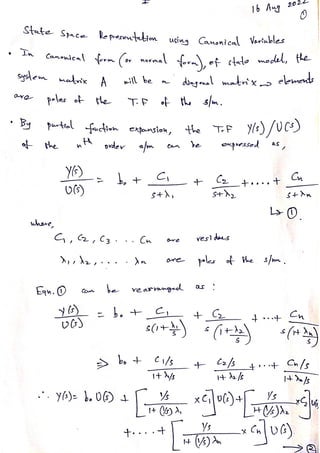 16 Aug 2022
①
State Space Representation using Canonical Variables
• In canonical form (or normal form), of state model, the
system matrix A will be a diagonal matrix → elements
are poles of the T.F of the s/m.
• By partial fraction expansion, the T.F Y(s)/U(s)
of the nth order s/m can be expressed as,
Y(s)/U(s) = b₀ + C₁/(s+λ₁) + C₂/(s+λ₂) + .... + Cn/(s+λn)
↳ ①.
where,
C₁, C₂, C₃ ... Cn are residues
λ₁, λ₂, .... λn are poles of the s/m.
Eqn. ① can be rearranged as :
Y(s)/U(s) = b₀ + C₁/(s(1+λ₁/s)) + C₂/(s(1+λ₂/s)) + ... + Cn/(s(1+λn/s))
⇒ b₀ + (C₁/s)/(1+λ₁/s) + (C₂/s)/(1+λ₂/s) + ... + (Cn/s)/(1+λn/s)
∴ Y(s) = b₀ U(s) + [(1/s)/(1+(1/s)λ₁) × C₁] U(s) + [(1/s)/(1+(1/s)λ₂) × C₂] U(s)
+ .... + [(1/s)/(1+(1/s)λn) × Cn] U(s)
→ ②